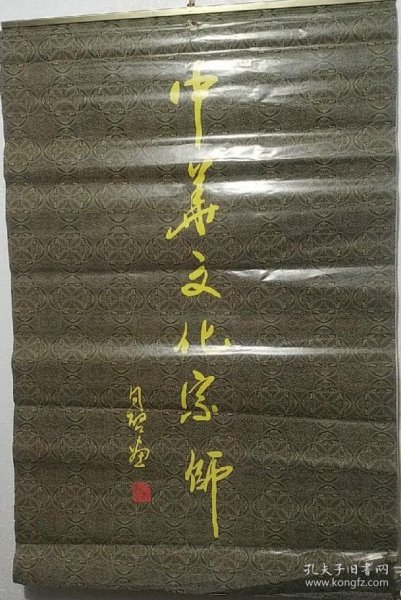 中華文化宗師
孔夫子旧书网
www.kongfz.com